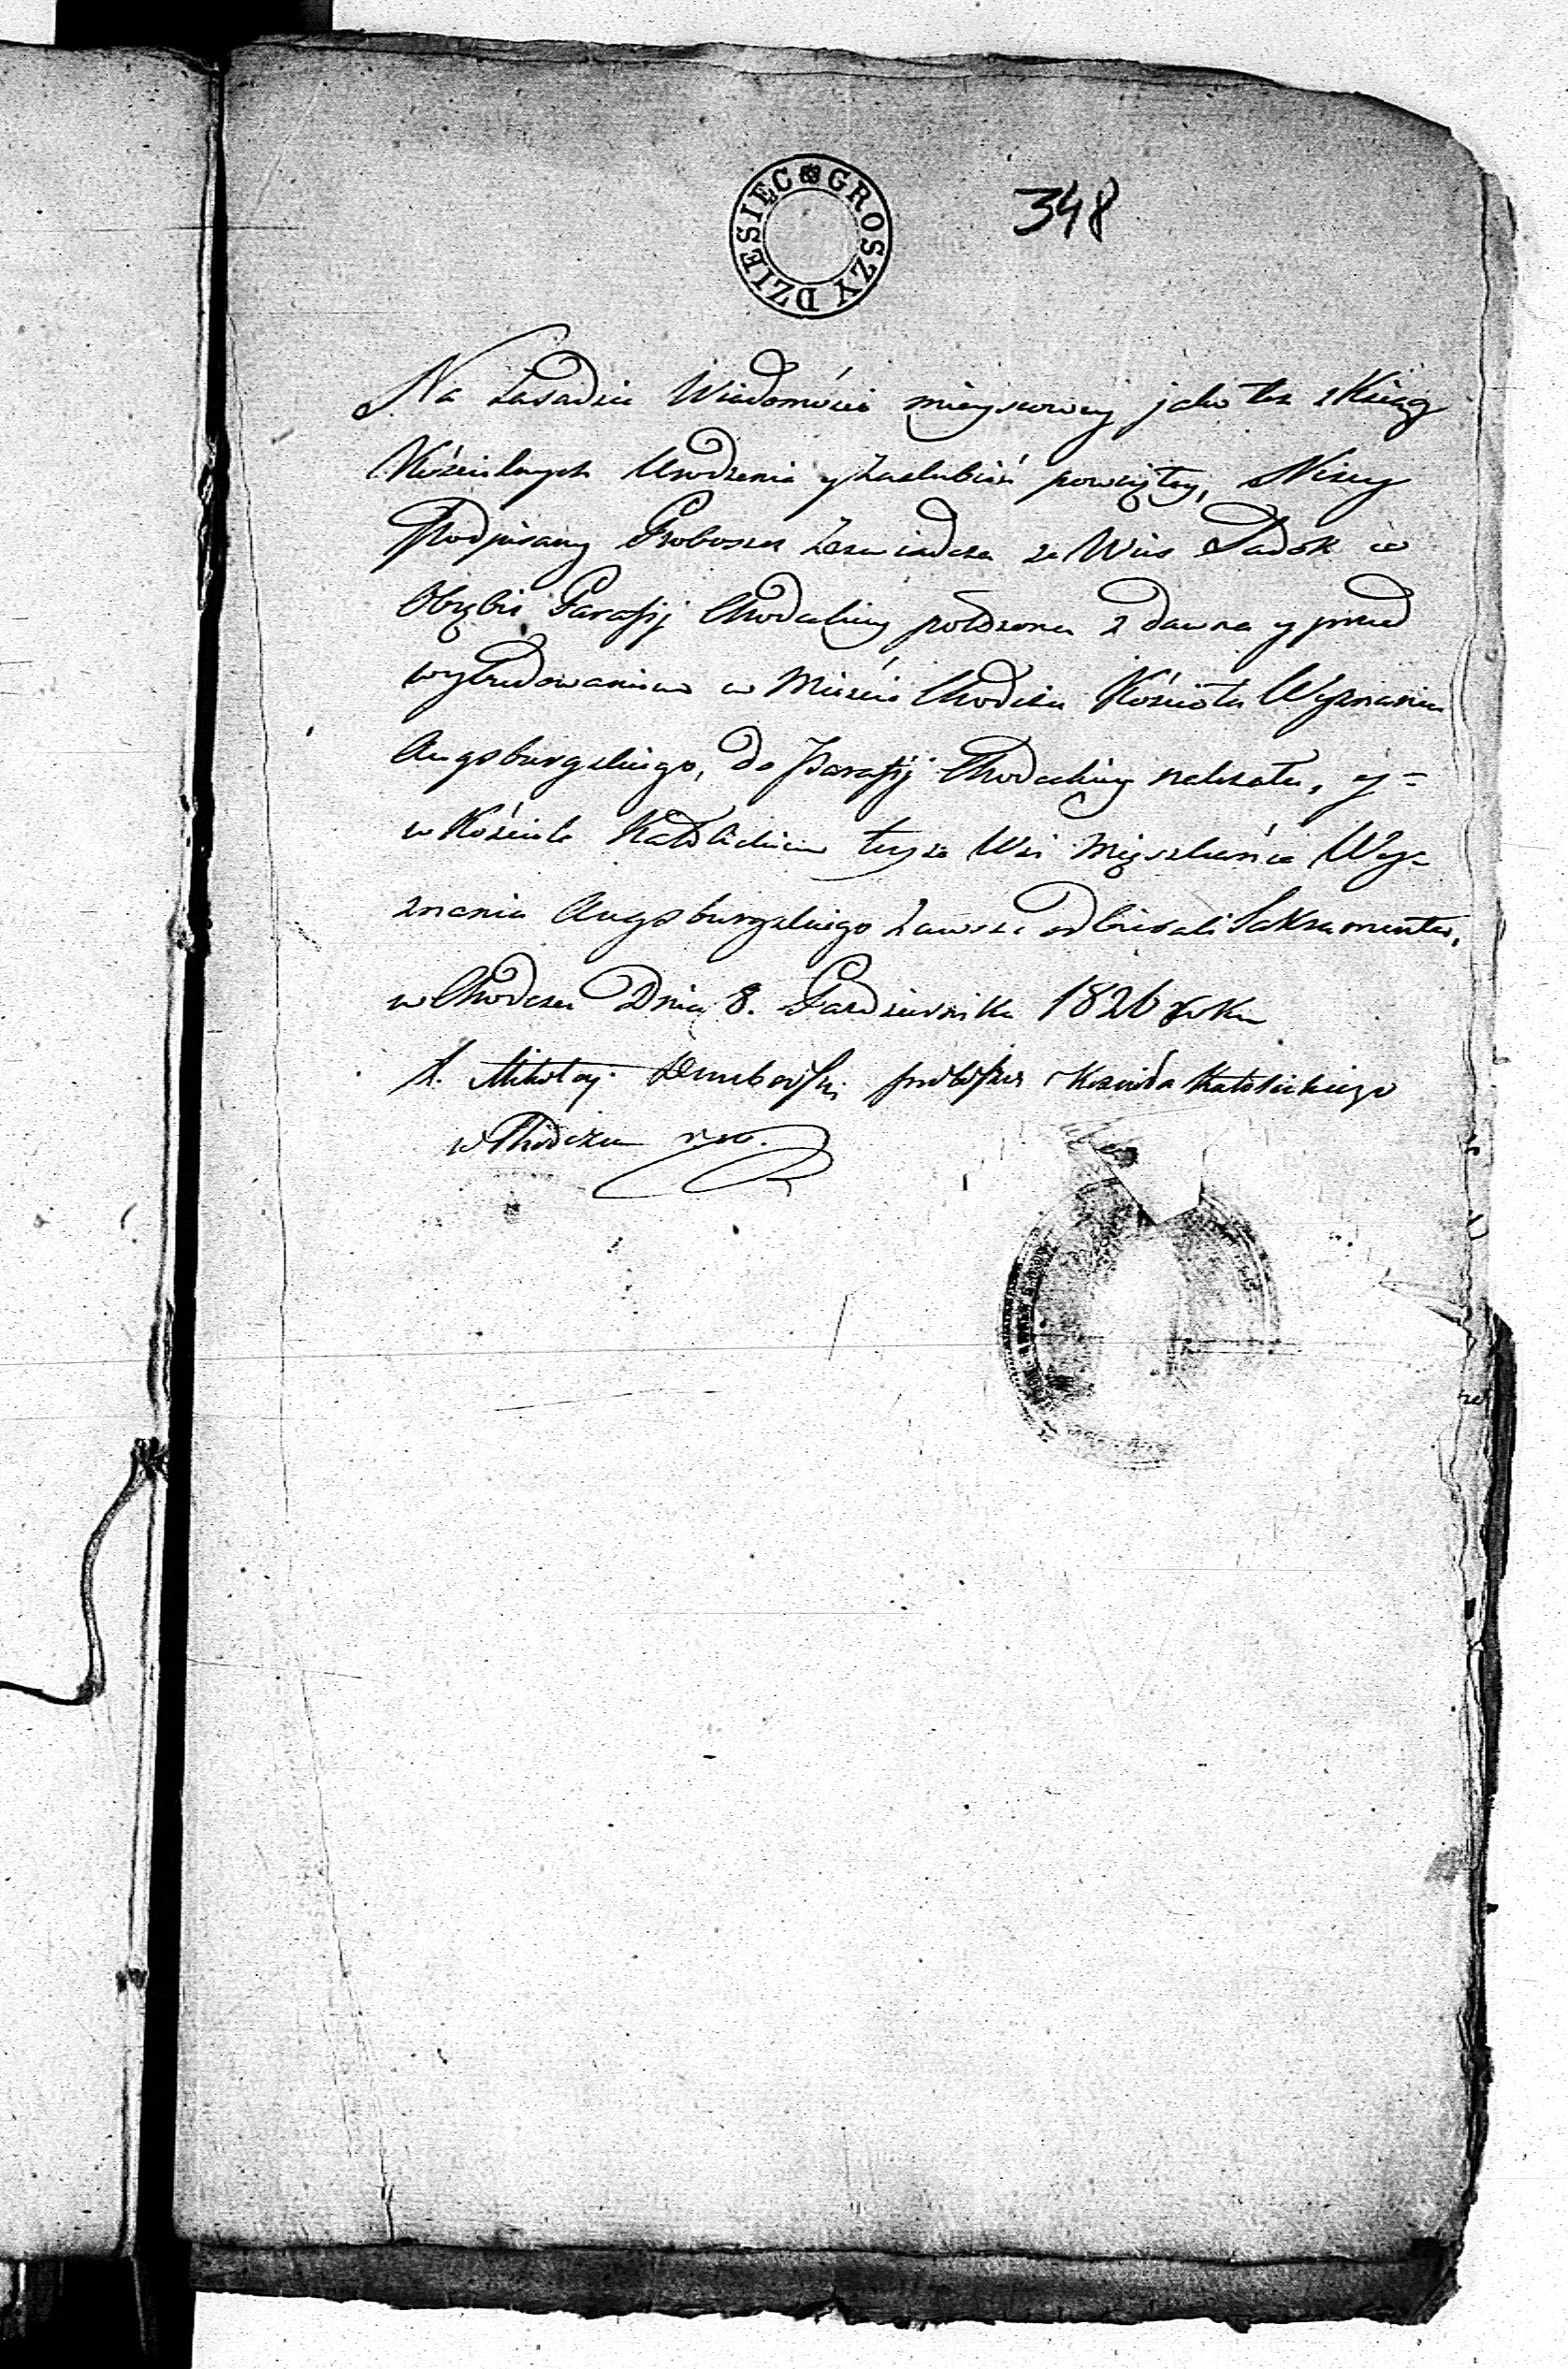 GROSZY DZIESIĘC
348
Na Zasadzie Wiadomości mieyscowey jako też z Xiąg
Kościelnych Urodzenia y Zaslubień powziętey, Niżey
Podpisany Proboszcz Zaswiadcza że Wieś Sadok w
Obrębie Parafij Chodeckiey położona z dawna y przed
wybudowaniem w Mieście Chodczu Kościoła Wyznania
Augsburgskiego, do Parafij Chodeckiey należała, y =
w Kościele Katolickim teyże Wsi Mięszkańce Wy=
znania Augsburgskiego zawsze odbierali Sakramenta,
w Chodczu Dnia 8. Pazdziernika 1826 roku
X. Mikołay proboszcz Koscioła Katolickiego
w Chodczu